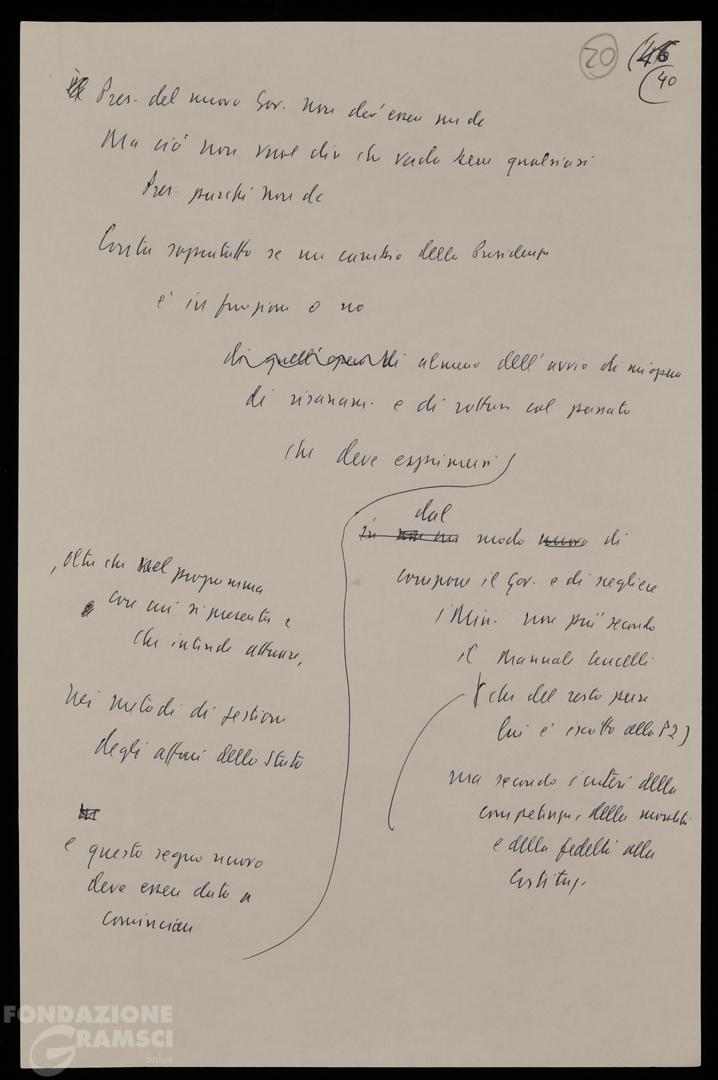 20
(46
(40
Il Pres. del nuovo Gov. non dev'essere un dc
Ma ciò non vuol dire che vada bene qualsiasi
Pres. purché non dc
Conta soprattutto se un cambio della Presidenza
è in funzione o no
di quell'opera di almeno dell'avvio di un'opera
di risanam. e di rottura col passato
che deve esprimersi
, oltre che nel programma
con cui si presenta e
che intende attuare,
nei metodi di gestione
degli affari dello Stato
e questo segno nuovo
deve essere dato a
cominciare
dal
in modo nuovo di
comporre il Gov. e di scegliere
i Min. non più secondo
il Manuale Cencelli
(che del resto pure
lui è iscritto alla P2)
ma secondo i criteri della
competenza, della moralità
e della fedeltà alla
Costituz.
FONDAZIONE
GRAMSCI
onlus